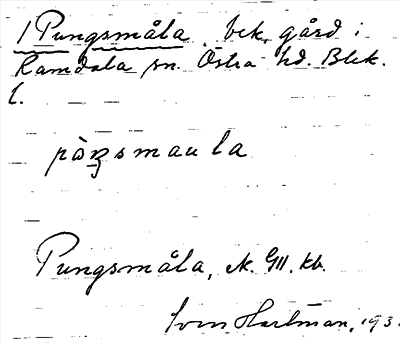 1 Pungsmåla, bek. gård i
Ramdala sn. Östra hd. Blek.
l.
pàŋsmaula
Pungsmåla, Ek. GM. kb.
Sven Hartman, 193